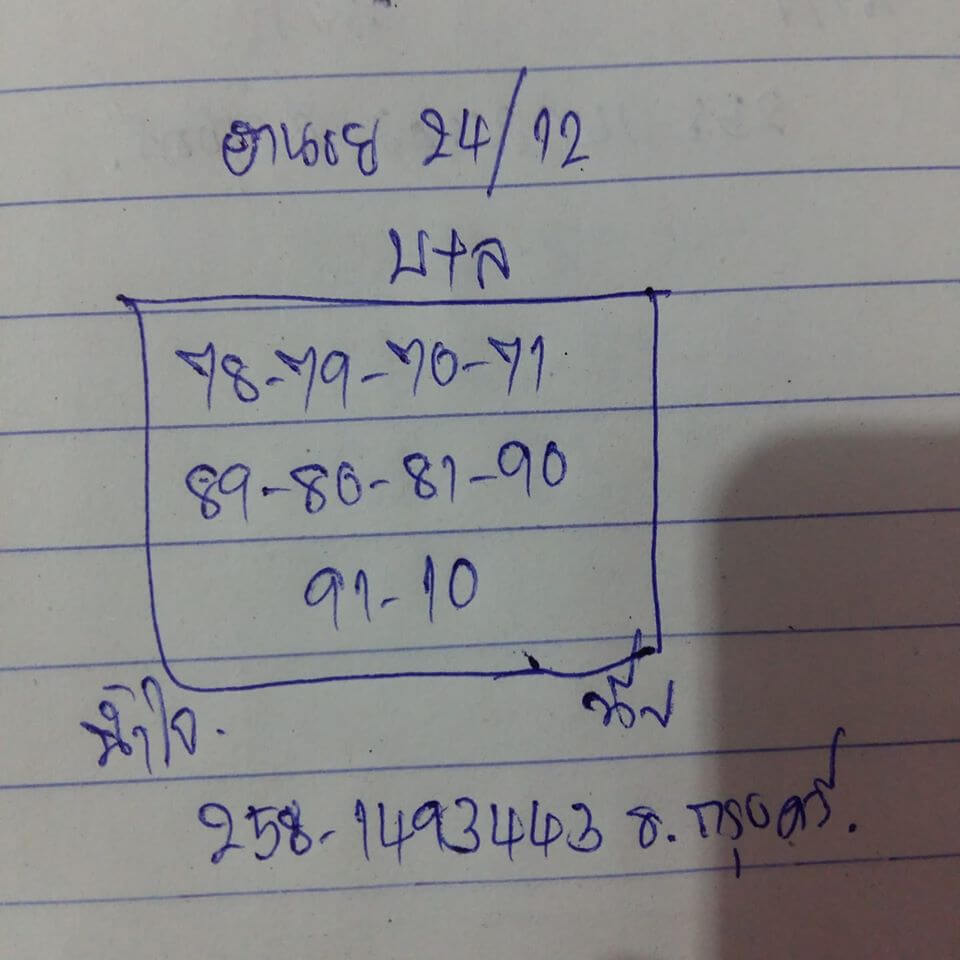 ฮานอย 24/12
บ+ล
78-79-70-71
89-80-81-90
91-10
น้ำใจ.
258-1493443 ธ.กรุงศรี.